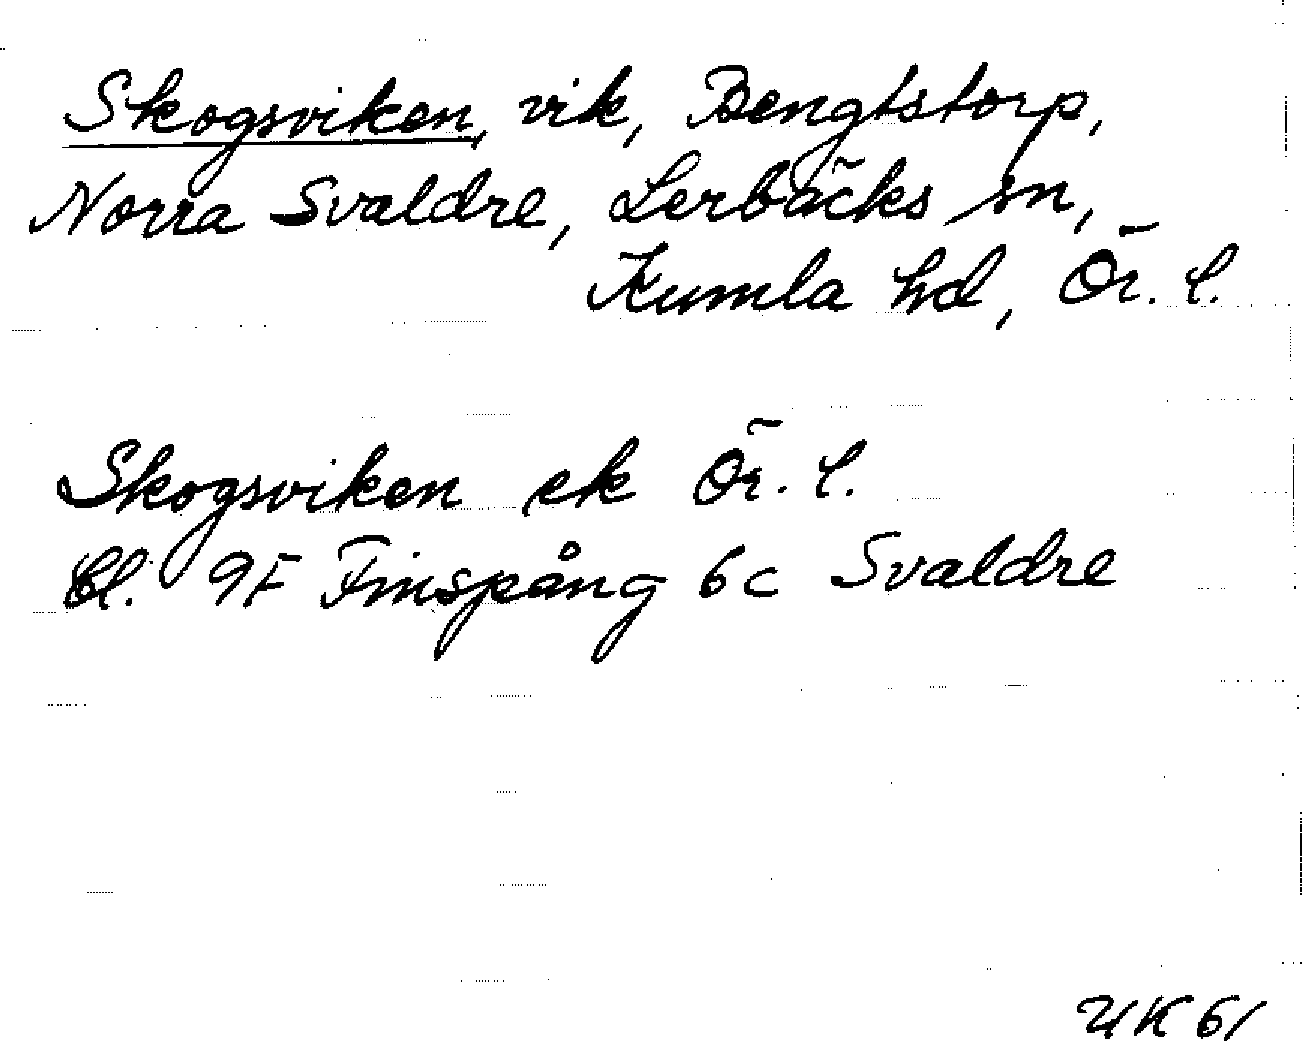 Skogsviken, vik, Bengtstorp,
Norra Svaldre, Lerbäcks sn,
Kumla hd, Ör. l.
Skogsviken ek Ör. l.
Bl. 9F Finspång 6c Svaldre
UK 61